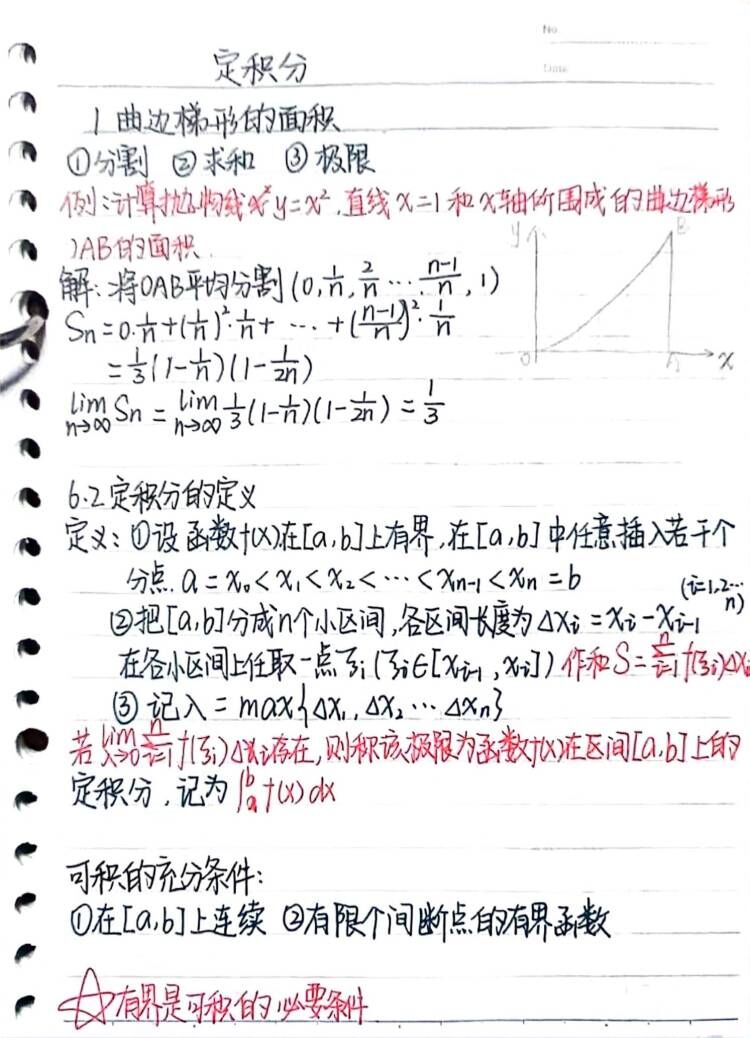 No
Date
定积分
1 曲边梯形的面积
①分割 ②求和 ③极限
例:计算抛物线 y=x²,直线x=1和x轴所围成的曲边梯形
OAB的面积.
解:将OAB平均分割(0, 1/n, 2/n … (n-1)/n, 1)
Sn=0·1/n+(1/n)²·1/n+ … +((n-1)/n)²·1/n
=1/3(1-1/n)(1-1/2n)
lim n→∞ Sn = lim n→∞ 1/3(1-1/n)(1-1/2n) = 1/3
y B
O A x
6.2定积分的定义
定义:①设函数f(x)在[a,b]上有界,在[a,b]中任意插入若干个
分点. a=x₀<x₁<x₂<…<xn-1<xn=b
(i=1,2…n)
②把[a,b]分成n个小区间,各区间长度为Δxi=xi-xi-1
在各小区间上任取一点ξi(ξi∈[xi-1,xi])作和S=∑ⁿi=1 f(ξi)Δxi
③记λ=max{Δx₁,Δx₂…Δxn}
若lim λ→0 ∑ⁿi=1 f(ξi)Δxi存在,则称该极限为函数f(x)在区间[a,b]上的
定积分,记为∫ᵇₐ f(x)dx
可积的充分条件:
①在[a,b]上连续 ②有限个间断点的有界函数
☆有界是可积的必要条件